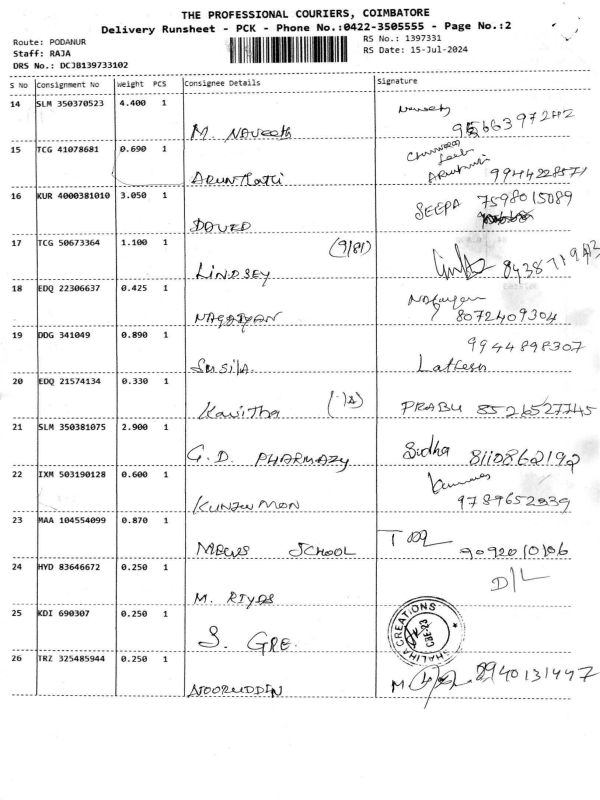 THE PROFESSIONAL COURIERS, COIMBATORE
Delivery Runsheet - PCK - Phone No.:0422-3505555 - Page No.:2
Route: PODANUR
Staff: RAJA
DRS No.: DCJB139733102
RS No.: 1397331
RS Date: 15-Jul-2024
S No Consignment No Weight PCS Consignee Details Signature
14 SLM 350370523 4.400 1
M. NAVEETH
15 TCG 41078681 0.690 1
9944228571
16 KUR 4000381010 3.050 1
SEEPA 7598015089
DAVED
17 TCG 50673364 1.100 1
(9/81)
LINDSEY
18 EDQ 22306637 0.425 1
NAGAIYAN 8072409304
19 DDG 341049 0.890 1
9944898307
SUSILA
20 EDQ 21574134 0.330 1
Kavitha PRABU 8526527745
21 SLM 350381075 2.900 1
G.D. PHARMAZY Sidha 8110862192
22 IXM 503190128 0.600 1
KUNJUMON 9789652939
23 MAA 104554099 0.870 1
SCHOOL 9092010106
24 HYD 83646672 0.250 1
D/L
M. RIYAS
25 KDI 690307 0.250 1
S. GRE.
SHALIHA CREATIONS
CBE-23
26 TRZ 325485944 0.250 1
NOORUDDIN M. 8940131447